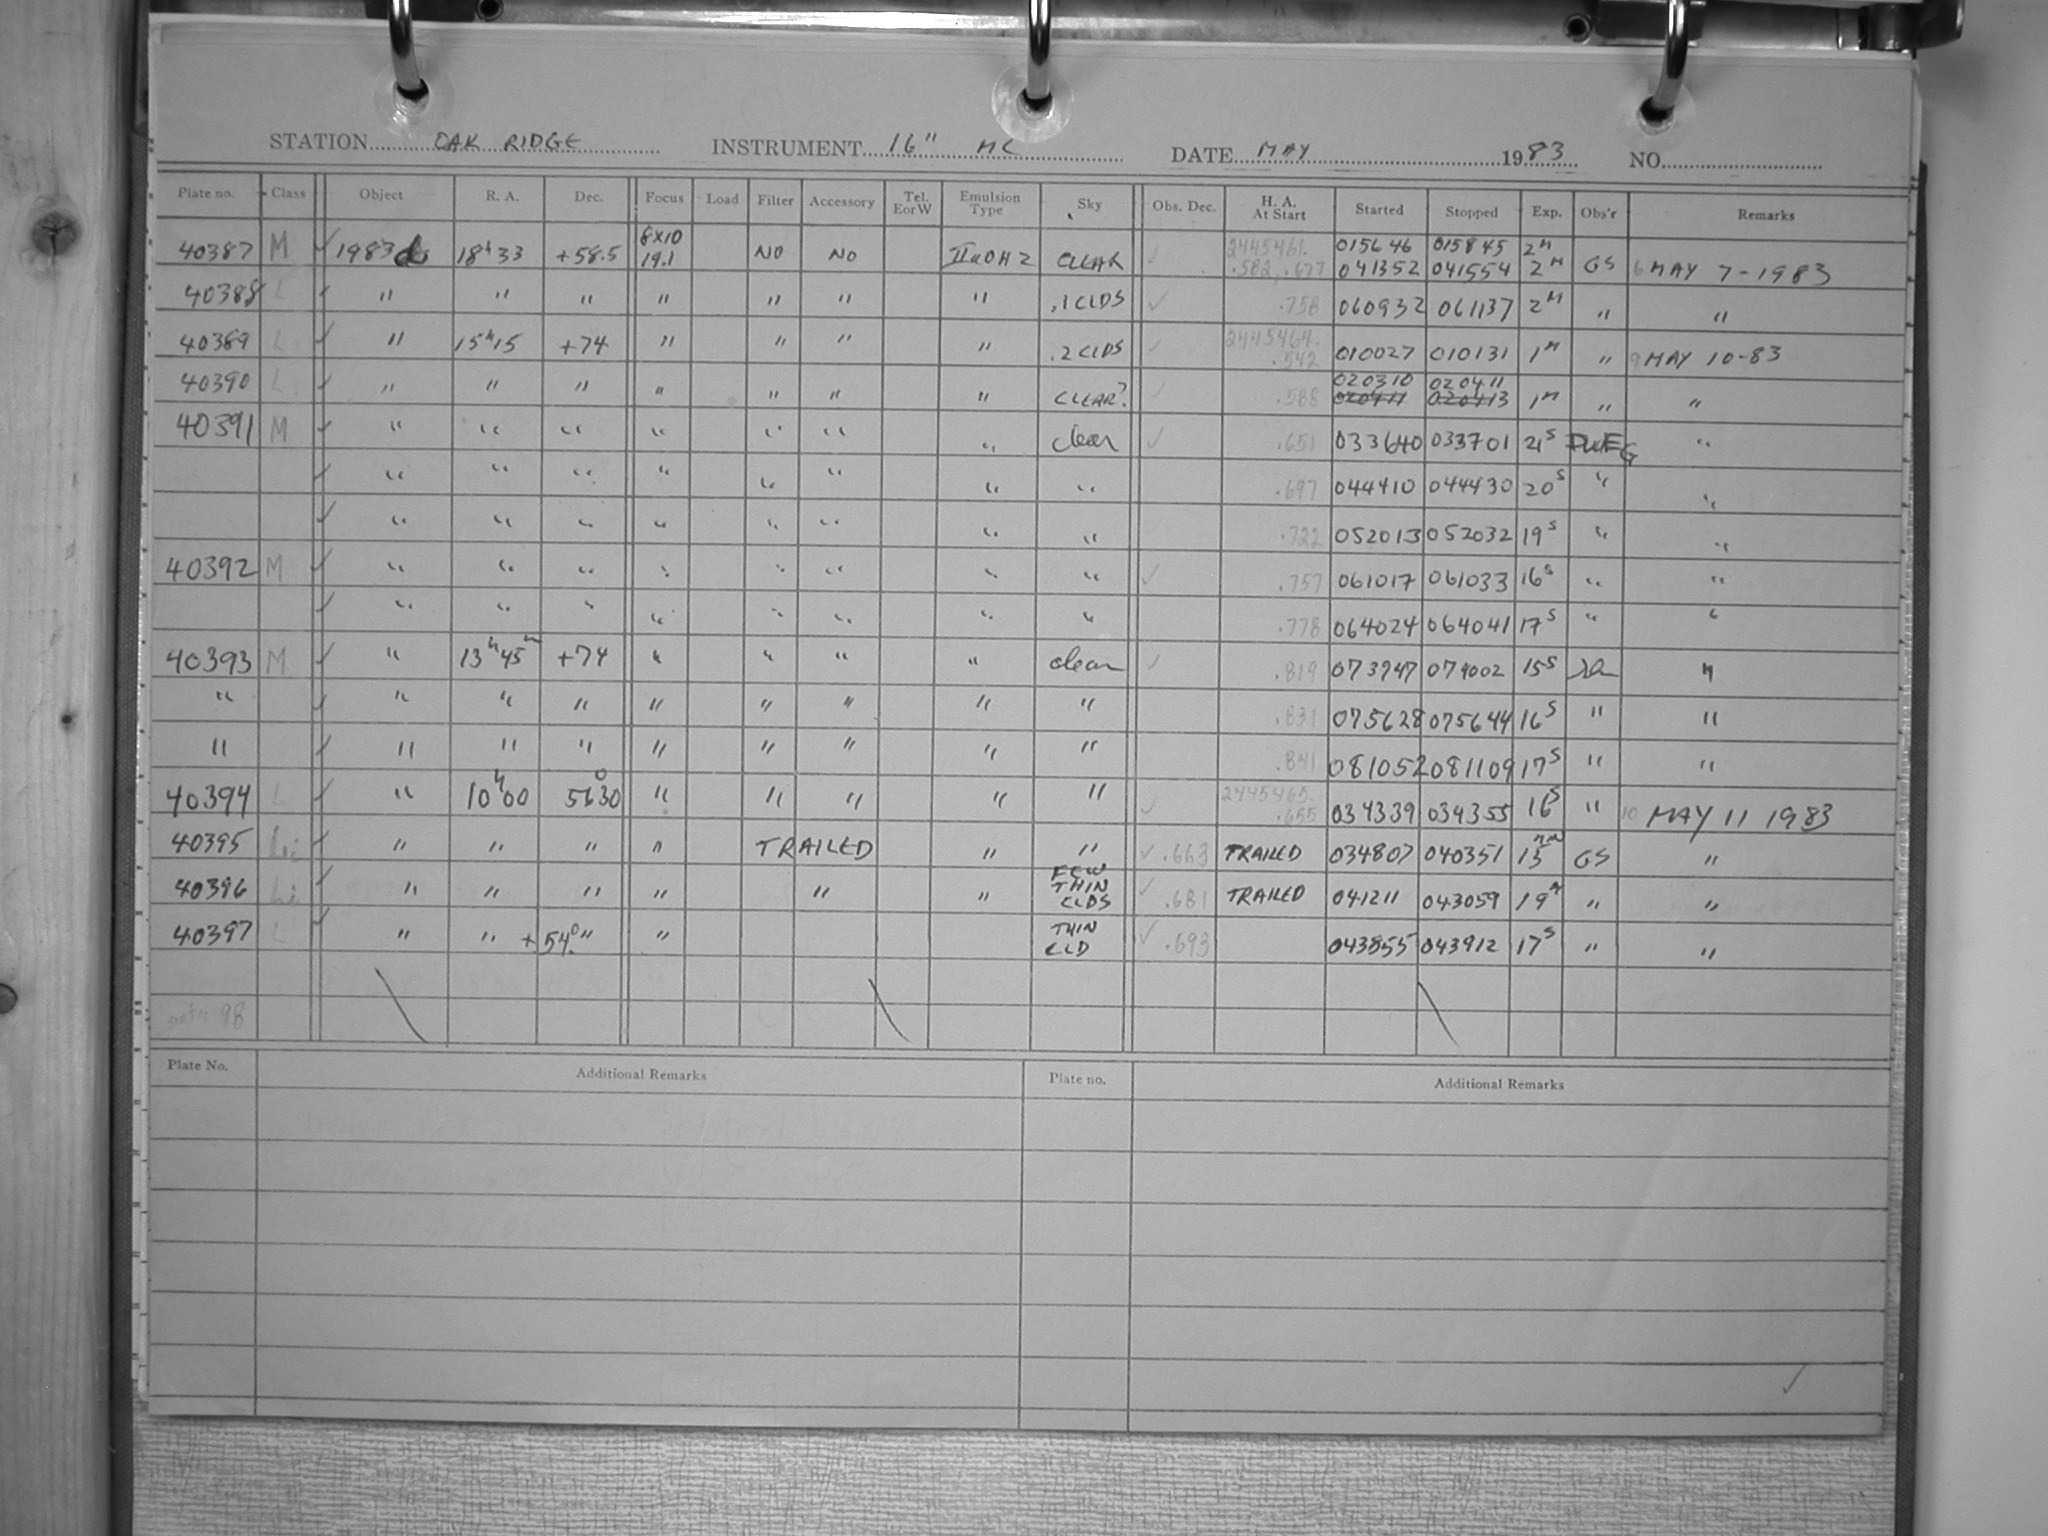 STATION OAK RIDGE INSTRUMENT 16" MC DATE MAY 1983 NO.
Plate no. Class Object R. A. Dec. Focus Load Filter Accessory Tel. EorW Emulsion Type Sky Obs. Dec. H. A. At Start Started Stopped Exp. Obs'r Remarks
40387 M ✓ 1983d 18h33 +58.5 8X10 19.1 NO NO IIaOH2 CLEAR ✓ 2445461. .582, .677 015646 015845 2M 041352 041554 2M GS 6 MAY 7-1983
40388 L ✓ " " " " " " " .1 CLDS ✓ .758 060932 061137 2M " "
40389 L ✓ " 15h15 +74 " " " " .2 CLDS ✓ 2445464. .542 010027 010131 1M " 9 MAY 10-83
40390 L ✓ " " " " " " " CLEAR? ✓ .588 020310 020411 020411 020413 1M " "
40391 M ✓ " " " " " " " clear ✓ .651 033640 033701 21s "
✓ " " " " " " " " .697 044410 044430 20s " "
✓ " " " " " " " " .722 052013 052032 19s " "
40392 M ✓ " " " " " " " " ✓ .757 061017 061033 16s " "
✓ " " " " " " " " .778 064024 064041 17s " "
40393 M ✓ " 13h45m +74 " " " " clear ✓ .819 073947 074002 15s "
" ✓ " " " " " " " " .831 075628 075644 16s " "
" ✓ " " " " " " " " .841 081052 081109 17s " "
40394 L ✓ " 10h00 5630 " " " " " ✓ 2445465. .655 034339 034355 16s " 10 MAY 11 1983
40395 Li ✓ " " " " TRAILED " " ✓ .663 TRAILED 034807 040351 GS "
40396 Li ✓ " " " " " " FEW THIN CLDS ✓ .681 TRAILED 041211 043059 19m " "
40397 L ✓ " " +54°" " THIN CLD ✓ .693 043855 043912 17s " "
98
Plate No. Additional Remarks Plate no. Additional Remarks
✓